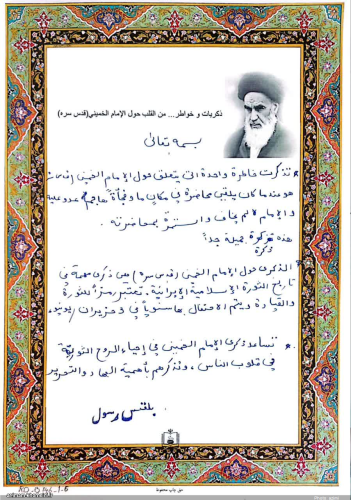 ذكريات و خواطر... من القلب حول الإمام الخميني(قدس سره)
بسمه تعالى
تذكرت خاطرة واحدة التي يتعلق حول الإمام الخميني (قدس سره)
هو عندما كان يلقي محاضرة في مكان ما وفجأة هاجم
والإمام لم يخاف واستمر بمحاضرته
هذه تذكرة جميلة جداً.
ذكرة
الذكرى حول الإمام الخميني (قدس سره) هي ذكرى مهمة في
تاريخ الثورة الإسلامية الإيرانية. تعتبر رمزاً للثورة
والقيادة ويتم الاحتفال بها سنوياً في حزيران / يونيو.
تساعد ذكرى الإمام الخميني في إحياء الروح الثورية
في قلوب الناس، وتذكرهم بأهمية الجهاد والتحرير
بلقيس رسول